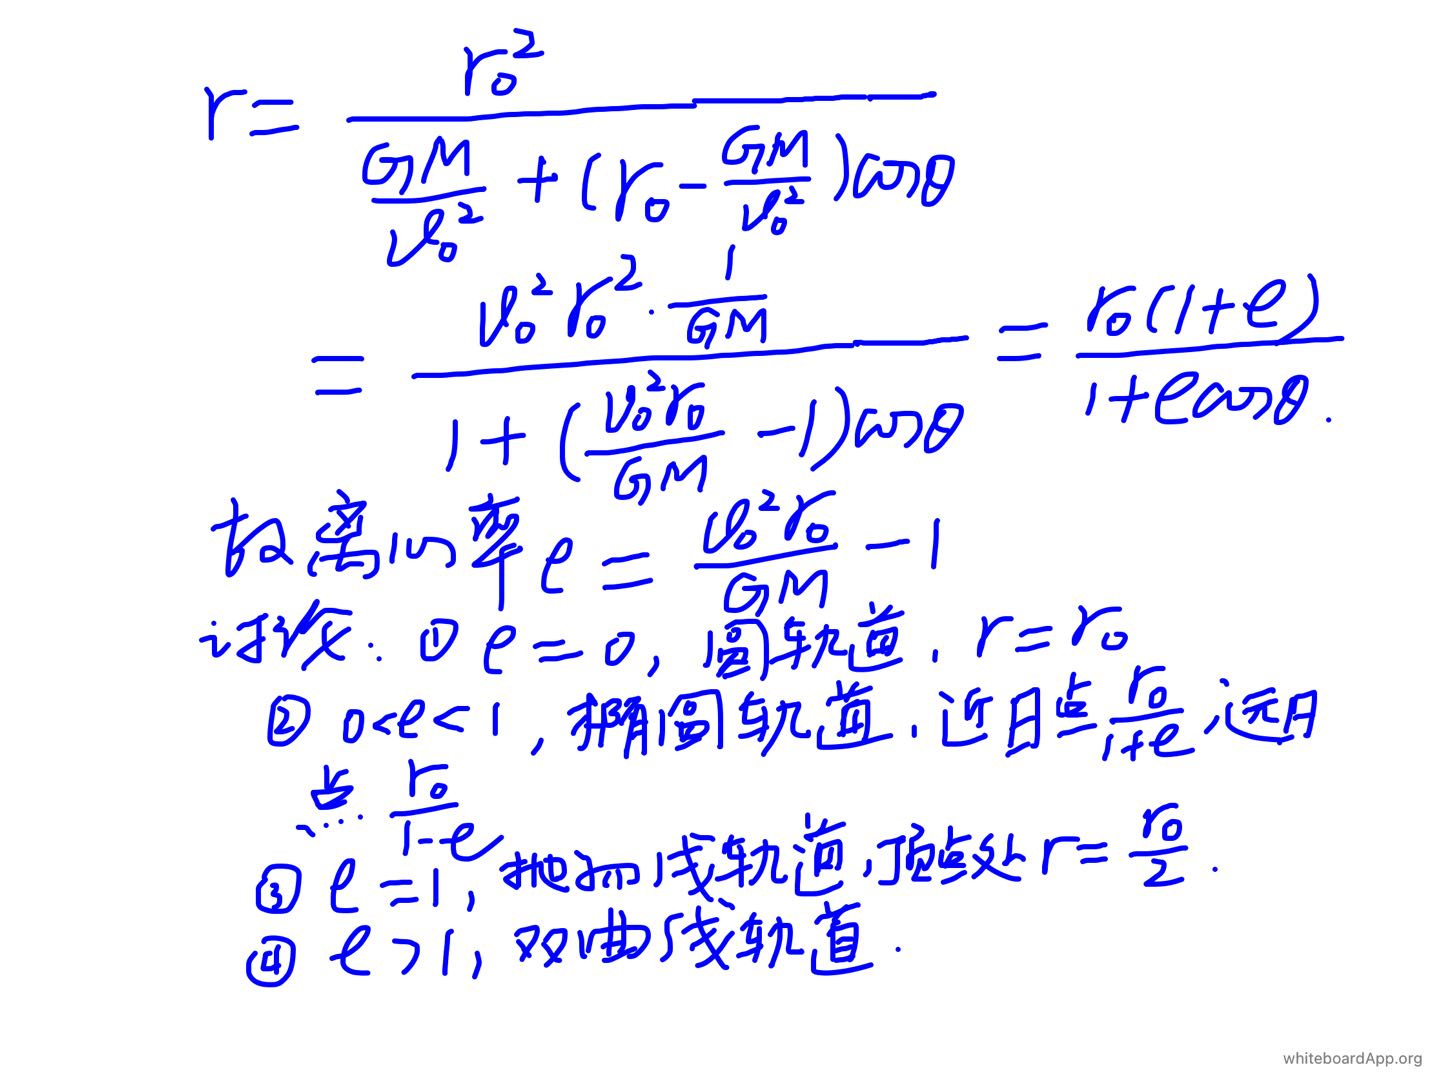 r = \frac{r_0^2}{\frac{GM}{v_0^2} + (r_0 - \frac{GM}{v_0^2})cosθ}
= \frac{v_0^2 r_0^2 · \frac{1}{GM}}{1 + (\frac{v_0^2 r_0}{GM} - 1)cosθ} = \frac{r_0(1+e)}{1+e cosθ}.
故离心率 e = \frac{v_0^2 r_0}{GM} - 1
讨论: ① e = 0, 圆轨道, r = r_0
② 0<e<1, 椭圆轨道, 近日点 \frac{r_0}{1+e}, 远日
点 \frac{r_0}{1-e}
③ e = 1, 抛物线轨道, 顶点处 r = \frac{r_0}{2}.
④ e > 1, 双曲线轨道.
whiteboardApp.org